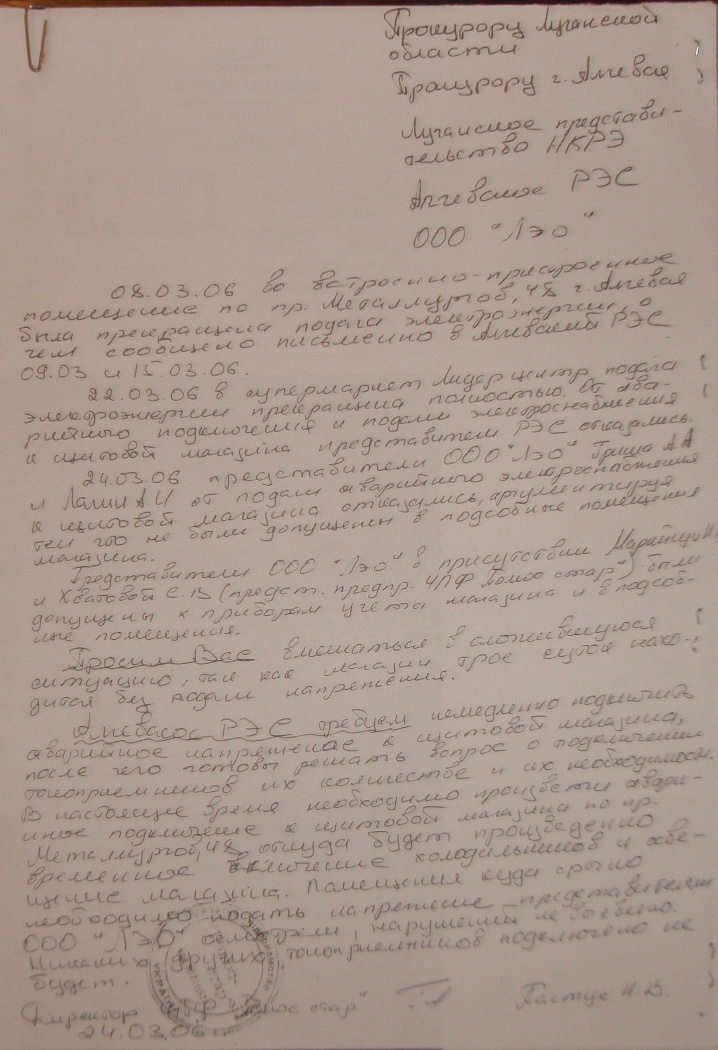 Прокурору Луганской
области
Прокурору г. Алчевска
Луганское представи-
тельство НКРЭ
Алчевское РЭС
ООО "Лэо"
08.03.06 во встроенно-пристроенное
помещение по пр. Металлургов, 48 г. Алчевска
была прекращена подача электроэнергии, о
чем сообщено письменно в Алчевский РЭС
09.03 и 15.03.06.
22.03.06 в супермаркет Лидер центр подача
электроэнергии прекращена полностью. От ава-
рийного подключения и подачи электроснабжения
к щитовой магазина представители РЭС отказались.
24.03.06 представители ООО "Лэо" Гриша А А
и Лапин А И от подачи аварийного электроснабжения
к щитовой магазина отказались, аргументируя
тем что не были допущены в подсобные помещения
магазина.
Представители ООО "Лэо" в присутствии
и Хватовой С.В (предст. предпр. ЧПФ "Полюс стар") были
допущены к приборам учета магазина и в подсоб-
ные помещения.
Просим Вас вмешаться в сложившуюся
ситуацию, так как магазин трое суток нахо-
дится без подачи напряжения.
Алчевское РЭС требуем немедленно подключить
аварийное напряжение к щитовой магазина,
после чего готовы решать вопрос о подключении
токоприемников их количестве и их необходимости.
В настоящее время необходимо произвести авари-
йное подключение к щитовой магазина по пр.
Металлургов, 48, откуда будет произведено
временное включение холодильников и осве-
щение магазина. Помещения куда срочно
необходимо подать напряжение представители
ООО "ЛЭО" осмотрели, нарушений не выявлено.
Никаких других токоприемников подключено не
будет.
Директор "Полюс стар" Пастух И.В.
24.03.06 г
УКРАЇНА